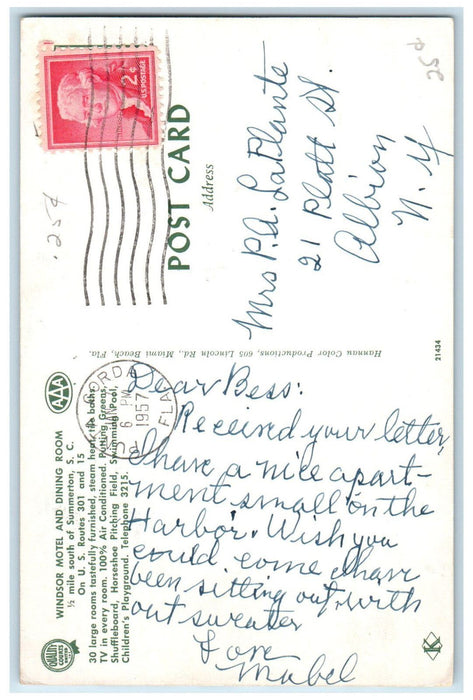 25¢
2¢
U.S. POSTAGE
.25¢
POST CARD
Address
Mrs P.A. LaPlante
21 Platt St.
Albion
N. Y
Hannau Color Productions, 605 Lincoln Rd., Miami Beach, Fla.
21434
GORDA
6 PM
1957
FLA
AAA
WINDSOR MOTEL AND DINING ROOM
½ mile south of Summerton, S. C.
On U. S. Routes 301 and 15
30 large rooms tastefully furnished, steam heat, tile baths.
TV in every room. 100% Air Conditioned. Putting Greens,
Shuffleboard, Horseshoe Pitching Field, Swimming Pool,
Children's Playground. Telephone 3215.
QUALITY
COURTS
UNITED
Dear Bess:
Received your letter,
I have a nice apart-
ment small on the
Harbor. Wish you
could come I have
been sitting out with
out sweater
Love
Mabel
K